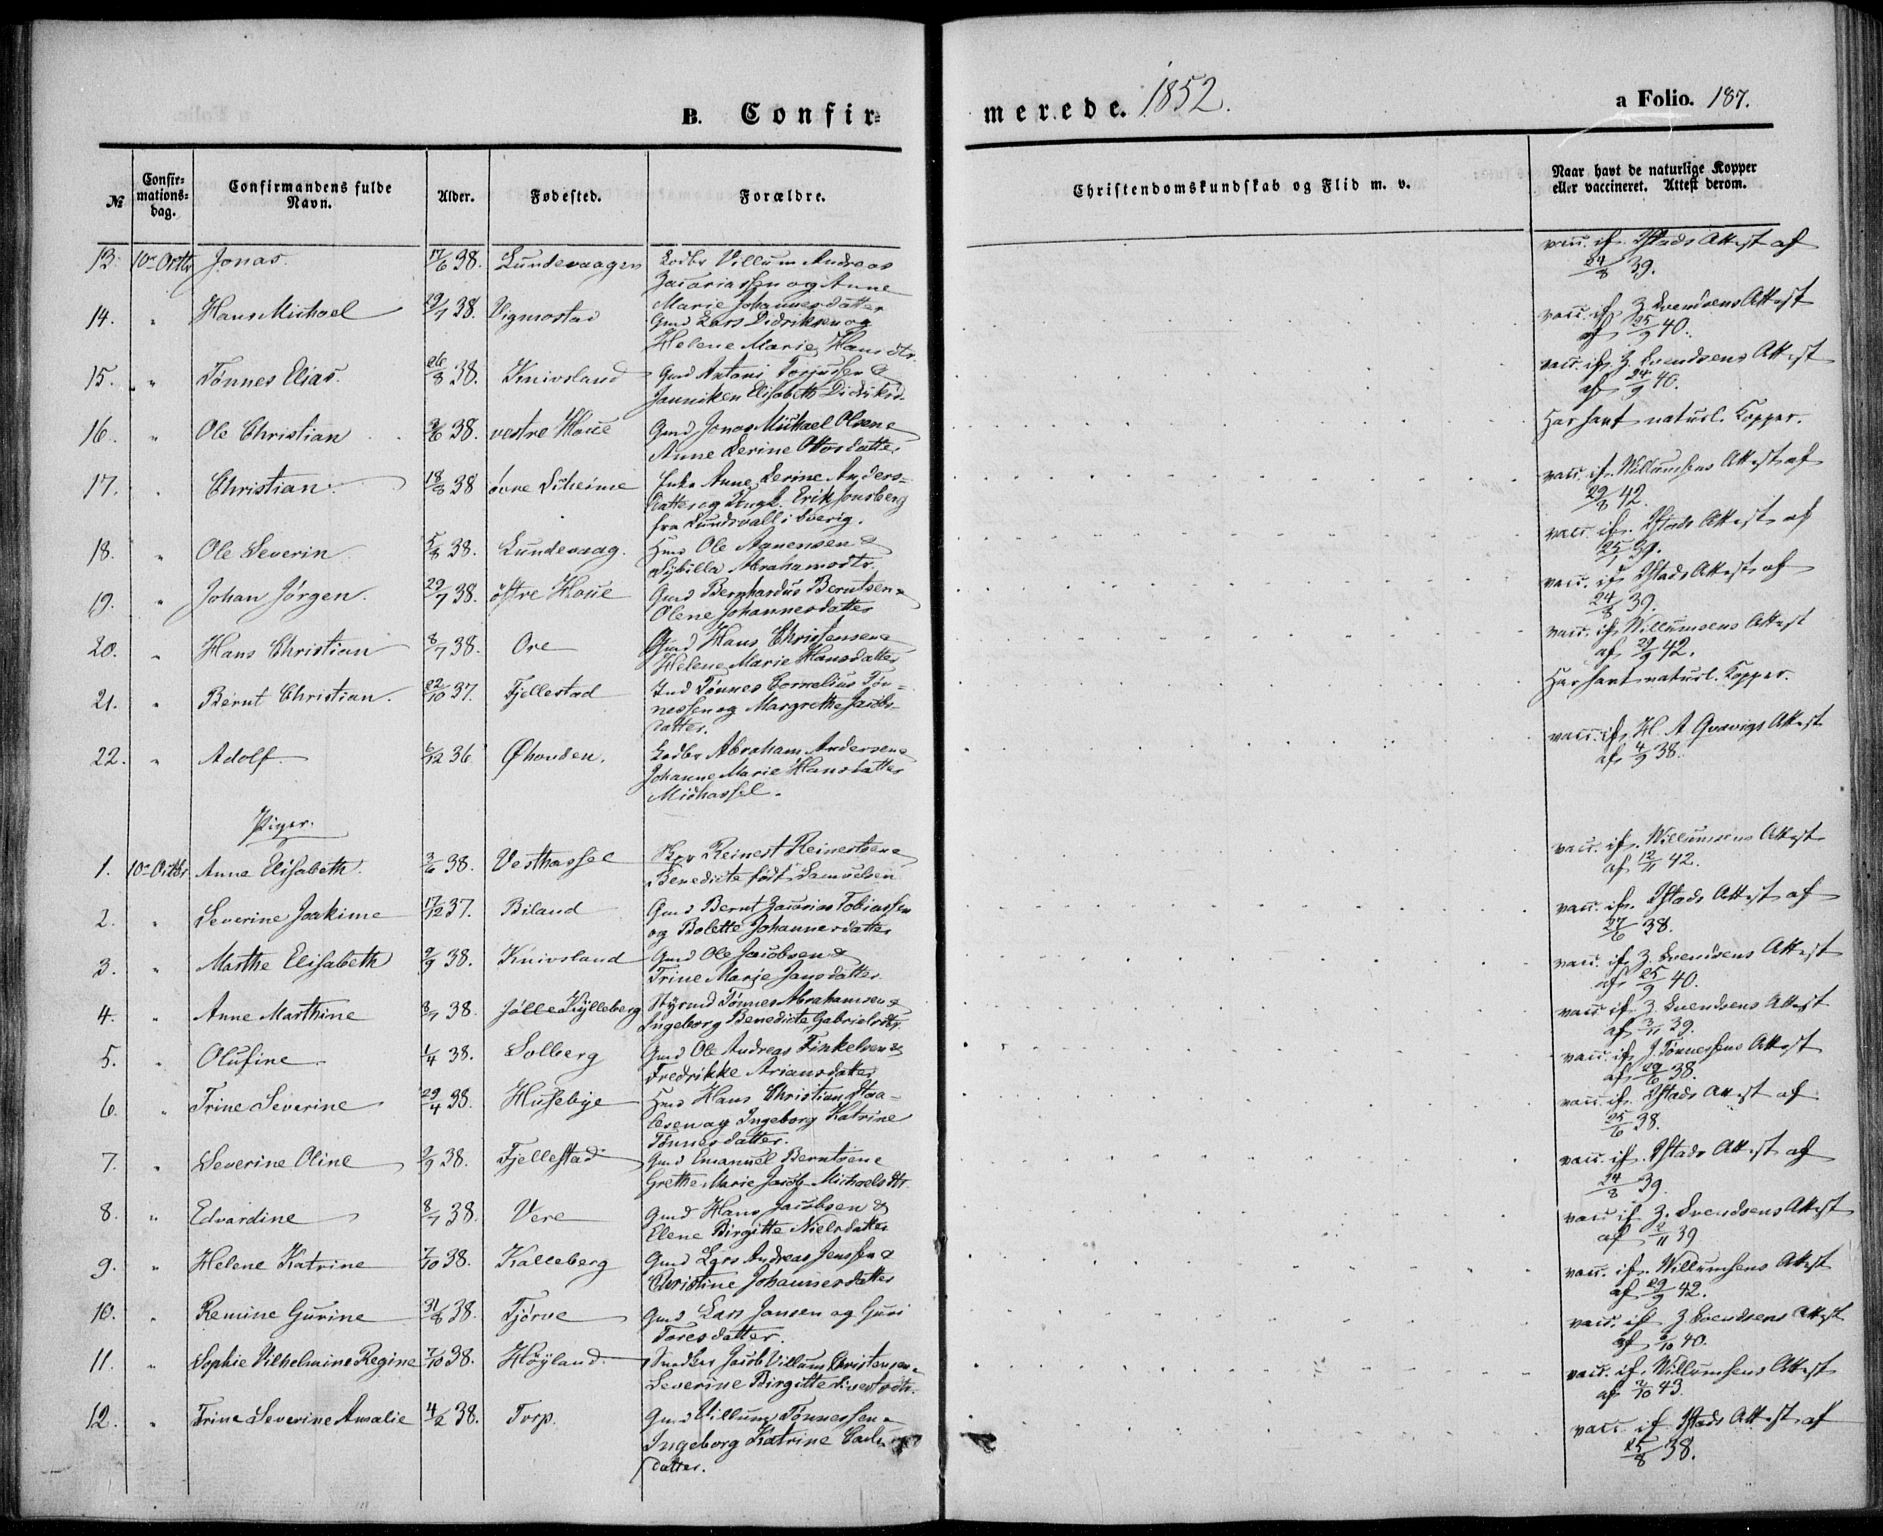 B. Confir=
merede. 1852.
a Folio. 187.
№ Confir=mations=dag. Confirmandens fulde Navn. Alder. Fødested. Forældre. Christendomskundskab og Flid m. v. Naar havt de naturlige Kopper eller vaccineret. Attest derom.
13. 10de Octbr Jonas. 17/6 38. Lundevaagen Lodbr Villum Andreas vacc. if. Ystads Attest af
Zacariassen og Anne 24/8 39.
Marie Johannesdatter
14. " Hans Michael 29/7 38. Vigmostad Gmd Lars Didriksen og vacc. if. Z. Svendsens Attest
Helene Marie Hansdtr. af 25/9 40.
15. " Tønnes Elias. 26/8 38. Knivsland Gmd Antoni Torjusen & vacc. if. Z. Svendsens Attest
Janniken Elisabeth Didriksd. af 24/9 40.
16. " Ole Christian 9/6 38. vestre Houe Gmd Jonas Michael Olsen & Har havt naturl. Kopper.
Anne Serine Ottosdatter
17. " Christian 18/8 38 øvre Skeime Enke Anne Serine Anders= vacc. if. Willumsens Attest af
datter og Ungk. Erik Jonsberg 29/8 42.
fra Sundsvall i Sverig.
18. " Ole Severin 5/8 38. Lundevaag. Hmd Ole Aanensen & vacc. if. Ystads Attest af
Sybilla Abrahamsdtr. 25/7 39.
19. " Johan Jørgen. 29/7 38. østre Houe Gmd Bernhardus Berntsen & vacc. if. Ystads Attest af
Olene Johannesdatter 24/8 39.
20. " Hans Christian 8/7 38. Ore Gmd Hans Christensen & vacc. if. Willumsens Attest
Helene Marie Hansdatter af 29/9 42.
21. " Bernt Christian. 22/10 37. Fjellestad Ind Tønnes Cornelius Tøn= Har havt naturl. Kopper.
nessen og Margrethe Jacobs=
datter.
22. " Adolf 6/12 36. Øhouden. Lodbr Abraham Andersen & vacc. if. H. A. Qvavigs Attest
Johanne Marie Hansdatter af 4/9 38.
Midhassel.
Piger.
1. 10de Octbr Anne Elisabeth. 3/6 38. Vesthassel Reinert Reinertsen & vacc. if. Willumsens Attest
Benedicte født Samuelsen af 12/11 42.
2. " Severine Joakime 17/12 37. Biland Gmd Bernt Zacarias Tobiassen vacc. if. Ystads Attest af
og Bolette Johannesdatter 27/6 38.
3. " Marthe Elisabeth 9/9 38. Knivsland Gmd Ole Jacobsen & vacc. if. Z. Svendsens Attest
Trine Marie Jansdatter. af 25/9 40.
4. " Anne Marthine 8/7 38. Jølle Kjylleberg Styrmd Tønnes Abrahamsen & vacc. if. Z. Svendsens Attest
Ingeborg Benedicte Gabrielsdtr. af 3/11 39.
5. " Olufine 1/4 38. Solberg Gmd Ole Andreas Finkelsen & vacc. if. J. Tønnessens Attest
Fredrikke Ariansdatter af 29/6 38.
6. " Trine Severine 29/4 38. Husebye Hmd Hans Christian Staa= vacc. if. Ystads Attest af
lesen og Ingeborg Katrine 25/6 38.
Tønnesdatter.
7. " Severine Oline 2/9 38. Fjellestad Gmd Emanuel Berntsen & vacc. if. Ystads Attest af
Grethe Marie Jacob Michaelsdtr. 24/8 39.
8. " Edvardine 8/7 38. Vere Gmd Hans Jacobsen & vacc. if. Z. Svendsens Attest
Elene Birgitte Nielsdatter af 2/11 39
9. " Helene Katrine 7/10 38. Kalleberg Gmd Lars Andreas Jenssen & vacc. if. Willumsens Attest
Christine Johannesdatter af 29/9 42.
10. " Remine Gurine 31/8 38. Tjørve Gmd Lars Jansen og Guri vacc. if. Z. Svendsens Attest
Toresdatter. af 6/10 40.
11. " Sophie Vilhelmine Regine 7/10 38. Høyland. Snedker Jacob Villum Christensen & vacc. if. Willumsens Attest
Severine Birgitte Sivertsdtr. af 2/10 43.
12. " Trine Severine Amalie 4/2 38. Torp. Gmd Villum Tønnessen & vacc. if. Ystads Attest af
Ingeborg Katrine Carls 25/8 38.
datter.